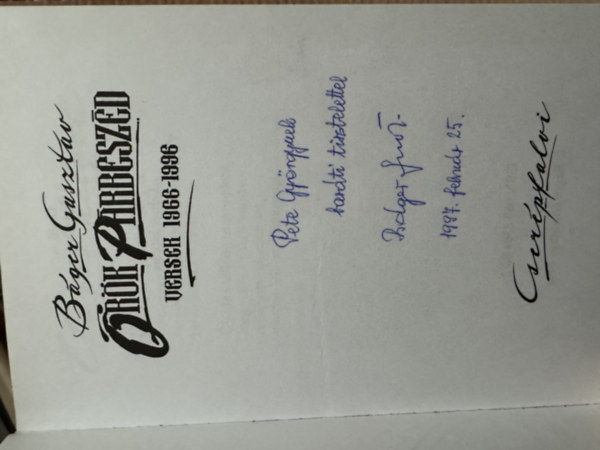 Báger Gusztáv
ÖRÖK PÁRBESZÉD
VERSEK 1966-1996
Pete Gyöngynek
baráti tisztelettel
Báger Gusztáv
1997. február 25.
Cserépfalvi